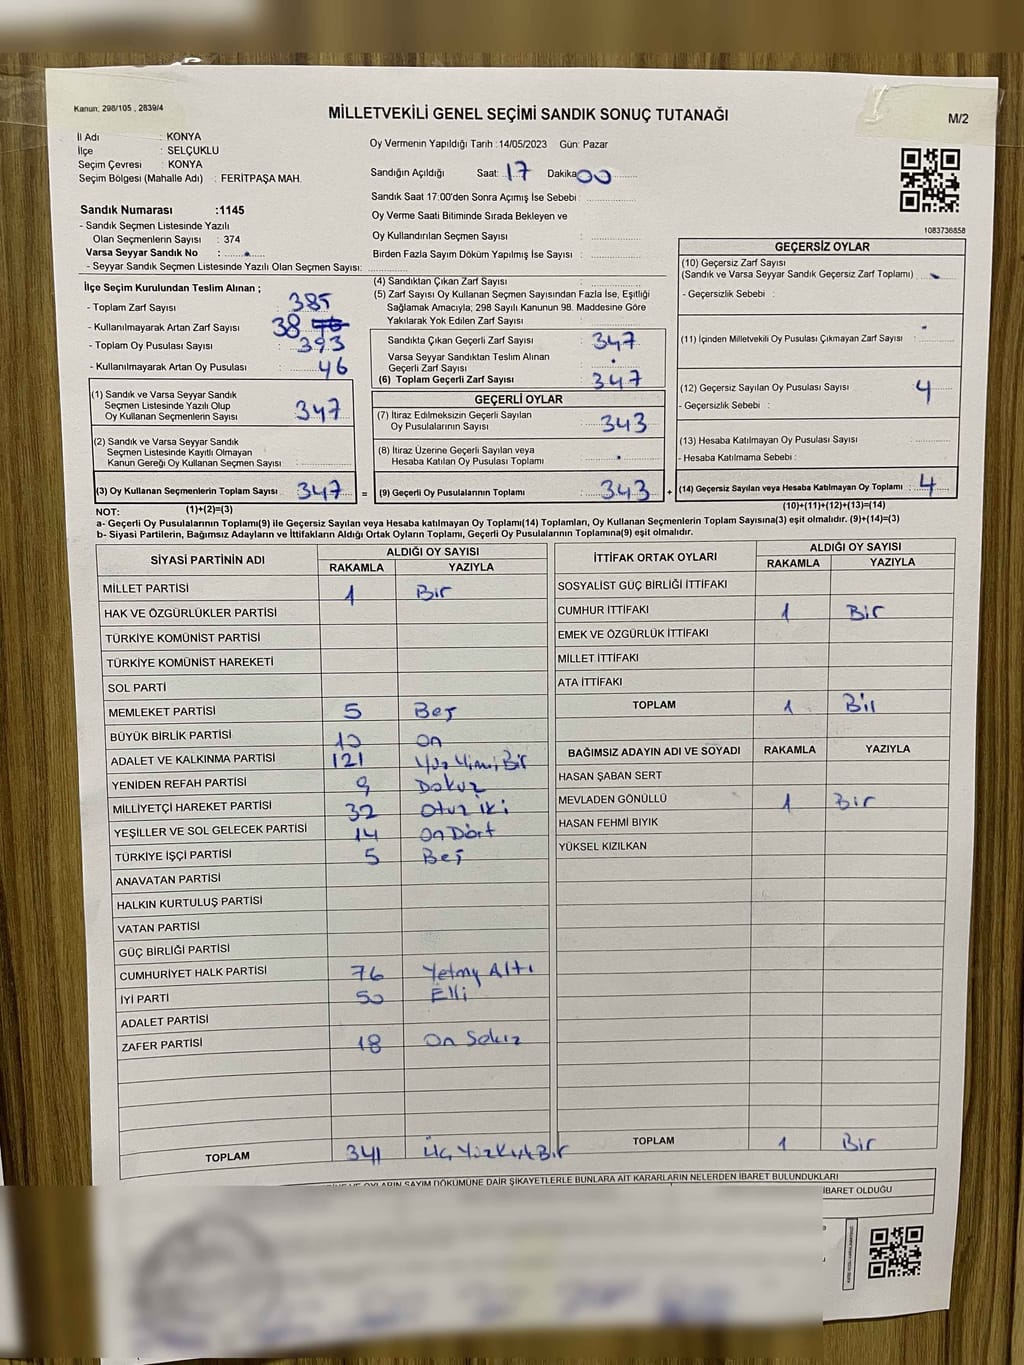 Kanun: 298/105 , 2839/4
MİLLETVEKİLİ GENEL SEÇİMİ SANDIK SONUÇ TUTANAĞI
M/2
İl Adı : KONYA
İlçe : SELÇUKLU
Seçim Çevresi : KONYA
Seçim Bölgesi (Mahalle Adı) : FERİTPAŞA MAH.
Oy Vermenin Yapıldığı Tarih :14/05/2023 Gün: Pazar
Sandığın Açıldığı Saat: 17 Dakika 00
Sandık Saat 17:00'den Sonra Açımış İse Sebebi :
Sandık Numarası :1145
- Sandık Seçmen Listesinde Yazılı
Olan Seçmenlerin Sayısı : 374
Varsa Seyyar Sandık No :
- Seyyar Sandık Seçmen Listesinde Yazılı Olan Seçmen Sayısı:
Oy Verme Saati Bitiminde Sırada Bekleyen ve
Oy Kullandırılan Seçmen Sayısı :
Birden Fazla Sayım Döküm Yapılmış İse Sayısı :
1083736858
İlçe Seçim Kurulundan Teslim Alınan ;
- Toplam Zarf Sayısı : 385
- Kullanılmayarak Artan Zarf Sayısı 38
- Toplam Oy Pusulası Sayısı : 393
- Kullanılmayarak Artan Oy Pusulası : 46
(1) Sandık ve Varsa Seyyar Sandık
Seçmen Listesinde Yazılı Olup
Oy Kullanan Seçmenlerin Sayısı : 347
(2) Sandık ve Varsa Seyyar Sandık
Seçmen Listesinde Kayıtlı Olmayan
Kanun Gereği Oy Kullanan Seçmen Sayısı :
(3) Oy Kullanan Seçmenlerin Toplam Sayısı : 347 =
(1)+(2)=(3)
(4) Sandıktan Çıkan Zarf Sayısı :
(5) Zarf Sayısı Oy Kullanan Seçmen Sayısından Fazla İse, Eşitliği
Sağlamak Amacıyla; 298 Sayılı Kanunun 98. Maddesine Göre
Yakılarak Yok Edilen Zarf Sayısı :
Sandıkta Çıkan Geçerli Zarf Sayısı : 347
Varsa Seyyar Sandıktan Teslim Alınan
Geçerli Zarf Sayısı :
(6) Toplam Geçerli Zarf Sayısı : 347
GEÇERLİ OYLAR
(7) İtiraz Edilmeksizin Geçerli Sayılan
Oy Pusulalarının Sayısı : 343
(8) İtiraz Üzerine Geçerli Sayılan veya
Hesaba Katılan Oy Pusulası Toplamı :
(9) Geçerli Oy Pusulalarının Toplamı : 343 +
GEÇERSİZ OYLAR
(10) Geçersiz Zarf Sayısı
(Sandık ve Varsa Seyyar Sandık Geçersiz Zarf Toplamı) :
- Geçersizlik Sebebi :
(11) İçinden Milletvekili Oy Pusulası Çıkmayan Zarf Sayısı :
(12) Geçersiz Sayılan Oy Pusulası Sayısı : 4
- Geçersizlik Sebebi :
(13) Hesaba Katılmayan Oy Pusulası Sayısı :
- Hesaba Katılmama Sebebi :
(14) Geçersiz Sayılan veya Hesaba Katılmayan Oy Toplamı : 4
(10)+(11)+(12)+(13)=(14)
NOT:
a- Geçerli Oy Pusulalarının Toplamı(9) ile Geçersiz Sayılan veya Hesaba katılmayan Oy Toplamı(14) Toplamları, Oy Kullanan Seçmenlerin Toplam Sayısına(3) eşit olmalıdır. (9)+(14)=(3)
b- Siyasi Partilerin, Bağımsız Adayların ve İttifakların Aldığı Ortak Oyların Toplamı, Geçerli Oy Pusulalarının Toplamına(9) eşit olmalıdır.
SİYASİ PARTİNİN ADI
ALDIĞI OY SAYISI
RAKAMLA YAZIYLA
MİLLET PARTİSİ 1 Bir
HAK VE ÖZGÜRLÜKLER PARTİSİ
TÜRKİYE KOMÜNİST PARTİSİ
TÜRKİYE KOMÜNİST HAREKETİ
SOL PARTİ
MEMLEKET PARTİSİ 5 Beş
BÜYÜK BİRLİK PARTİSİ 10 On
ADALET VE KALKINMA PARTİSİ 121 Yüz Yirmi Bir
YENİDEN REFAH PARTİSİ 9 Dokuz
MİLLİYETÇİ HAREKET PARTİSİ 32 Otuz iki
YEŞİLLER VE SOL GELECEK PARTİSİ 14 On Dört
TÜRKİYE İŞÇİ PARTİSİ 5 Beş
ANAVATAN PARTİSİ
HALKIN KURTULUŞ PARTİSİ
VATAN PARTİSİ
GÜÇ BİRLİĞİ PARTİSİ
CUMHURİYET HALK PARTİSİ 76 Yetmiş Altı
İYİ PARTİ 50 Elli
ADALET PARTİSİ
ZAFER PARTİSİ 18 On Sekiz
TOPLAM 341 Üç Yüz Kırk Bir
İTTİFAK ORTAK OYLARI
ALDIĞI OY SAYISI
RAKAMLA YAZIYLA
SOSYALİST GÜÇ BİRLİĞİ İTTİFAKI
CUMHUR İTTİFAKI 1 Bir
EMEK VE ÖZGÜRLÜK İTTİFAKI
MİLLET İTTİFAKI
ATA İTTİFAKI
TOPLAM 1 Bir
BAĞIMSIZ ADAYIN ADI VE SOYADI RAKAMLA YAZIYLA
HASAN ŞABAN SERT
MEVLADEN GÖNÜLLÜ 1 Bir
HASAN FEHMİ BIYIK
YÜKSEL KIZILKAN
TOPLAM 1 Bir
OYLARIN SAYIM DÖKÜMÜNE DAİR ŞİKAYETLERLE BUNLARA AİT KARARLARIN NELERDEN İBARET BULUNDUKLARI
İBARET OLDUĞU